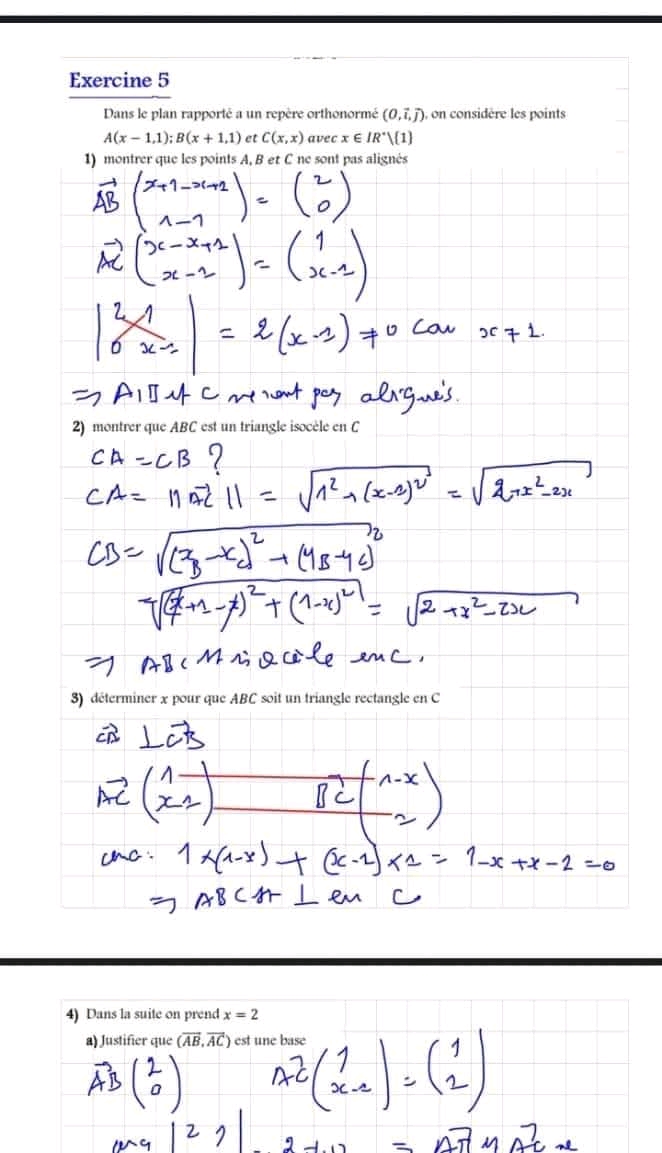 Exercine 5
Dans le plan rapporté a un repère orthonormé (O, i⃗, j⃗). on considère les points
A(x − 1,1); B(x + 1,1) et C(x, x) avec x ∈ IR*\{1}
1) montrer que les points A, B et C ne sont pas alignés
AB⃗ (x+1-x+1 / 1-1) = (2 / 0)
AC⃗ (x-x+1 / x-1) = (1 / x-1)
|2 1 / 0 x-1| = 2(x-1) ≠ 0 car x ≠ 1.
⇒ A, B et C ne sont pas alignés.
2) montrer que ABC est un triangle isocèle en C
CA = CB ?
CA = ||AC⃗|| = √(1² + (x-1)²) = √(2+x²-2x)
CB = √((xB - xC)² + (yB - yC)²)
√((x+1-x)² + (1-x)²) = √(2+x²-2x)
⇒ ABC isocèle en C.
3) déterminer x pour que ABC soit un triangle rectangle en C
⊥ CB⃗
AC⃗ (1 / x-1) BC⃗ (1-x / )
1×(1-x) + (x-1)×1 = 1-x+x-1 = 0
⇒ ABC est ⊥ en C
4) Dans la suite on prend x = 2
a) Justifier que (AB⃗, AC⃗) est une base
AB⃗ (2 / 0) AC⃗ (1 / x-1) = (1 / 1)